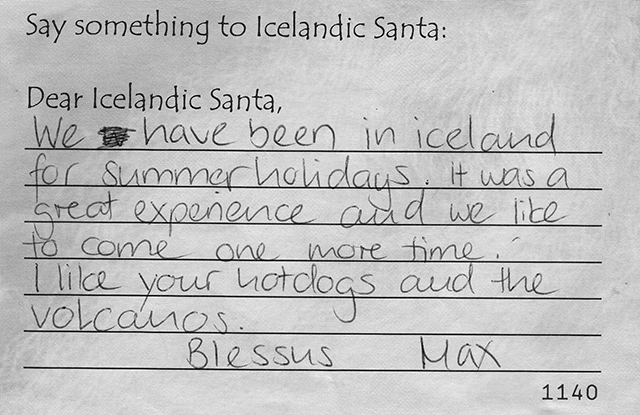 Say something to Icelandic Santa:
Dear Icelandic Santa,
We have been in iceland
for summerholidays. It was a
great experience and we like
to come one more time.
I like your hotdogs and the
volcanos.
Blessus Max
1140